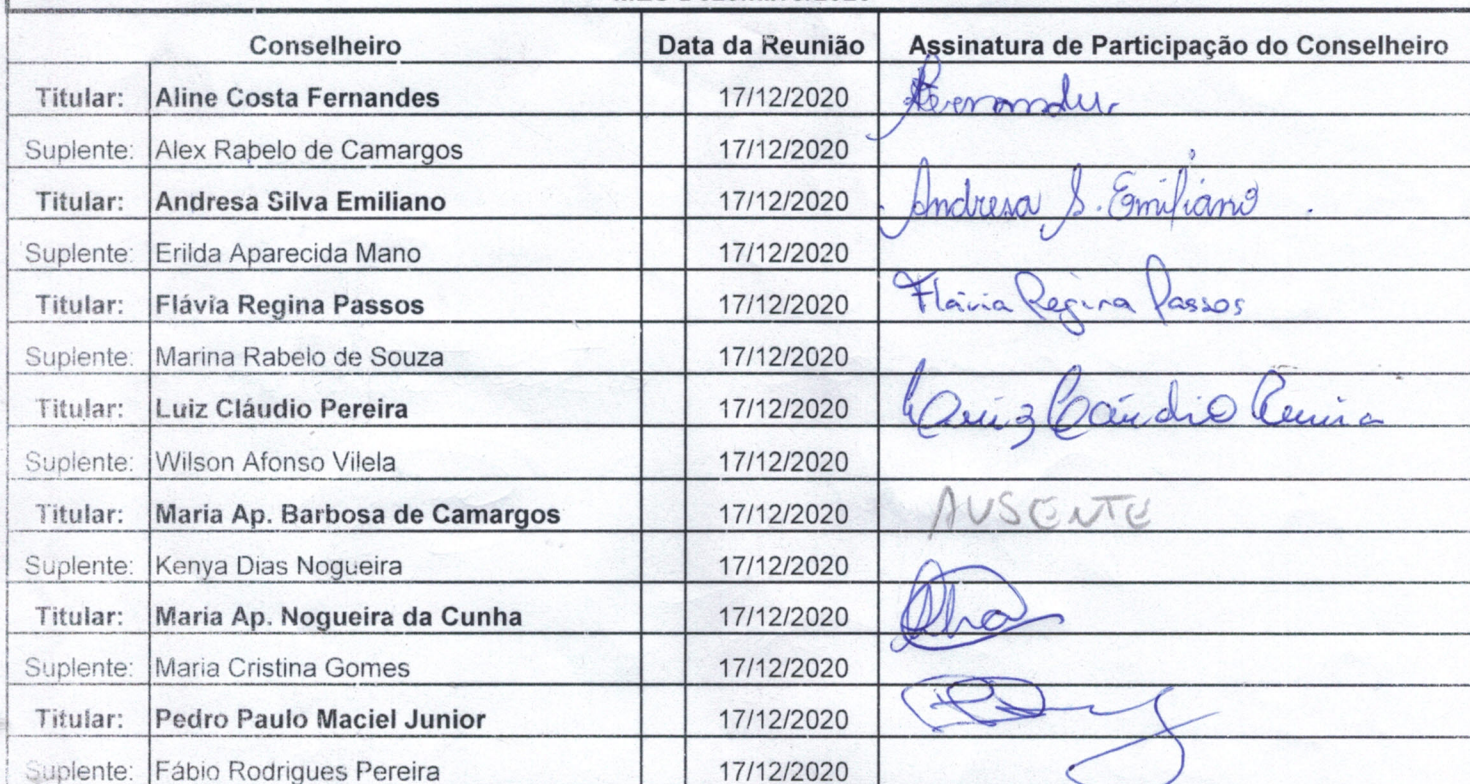 Conselheiro Data da Reunião Assinatura de Participação do Conselheiro
Titular: Aline Costa Fernandes 17/12/2020
Suplente: Alex Rabelo de Camargos 17/12/2020
Titular: Andresa Silva Emiliano 17/12/2020 Andresa S. Emiliano
Suplente: Erilda Aparecida Mano 17/12/2020
Titular: Flávia Regina Passos 17/12/2020 Flávia Regina Passos
Suplente: Marina Rabelo de Souza 17/12/2020
Titular: Luiz Cláudio Pereira 17/12/2020 Luiz Cláudio Pereira
Suplente: Wilson Afonso Vilela 17/12/2020
Titular: Maria Ap. Barbosa de Camargos 17/12/2020 AUSENTE
Suplente: Kenya Dias Nogueira 17/12/2020
Titular: Maria Ap. Nogueira da Cunha 17/12/2020
Suplente: Maria Cristina Gomes 17/12/2020
Titular: Pedro Paulo Maciel Junior 17/12/2020
Suplente: Fábio Rodrigues Pereira 17/12/2020